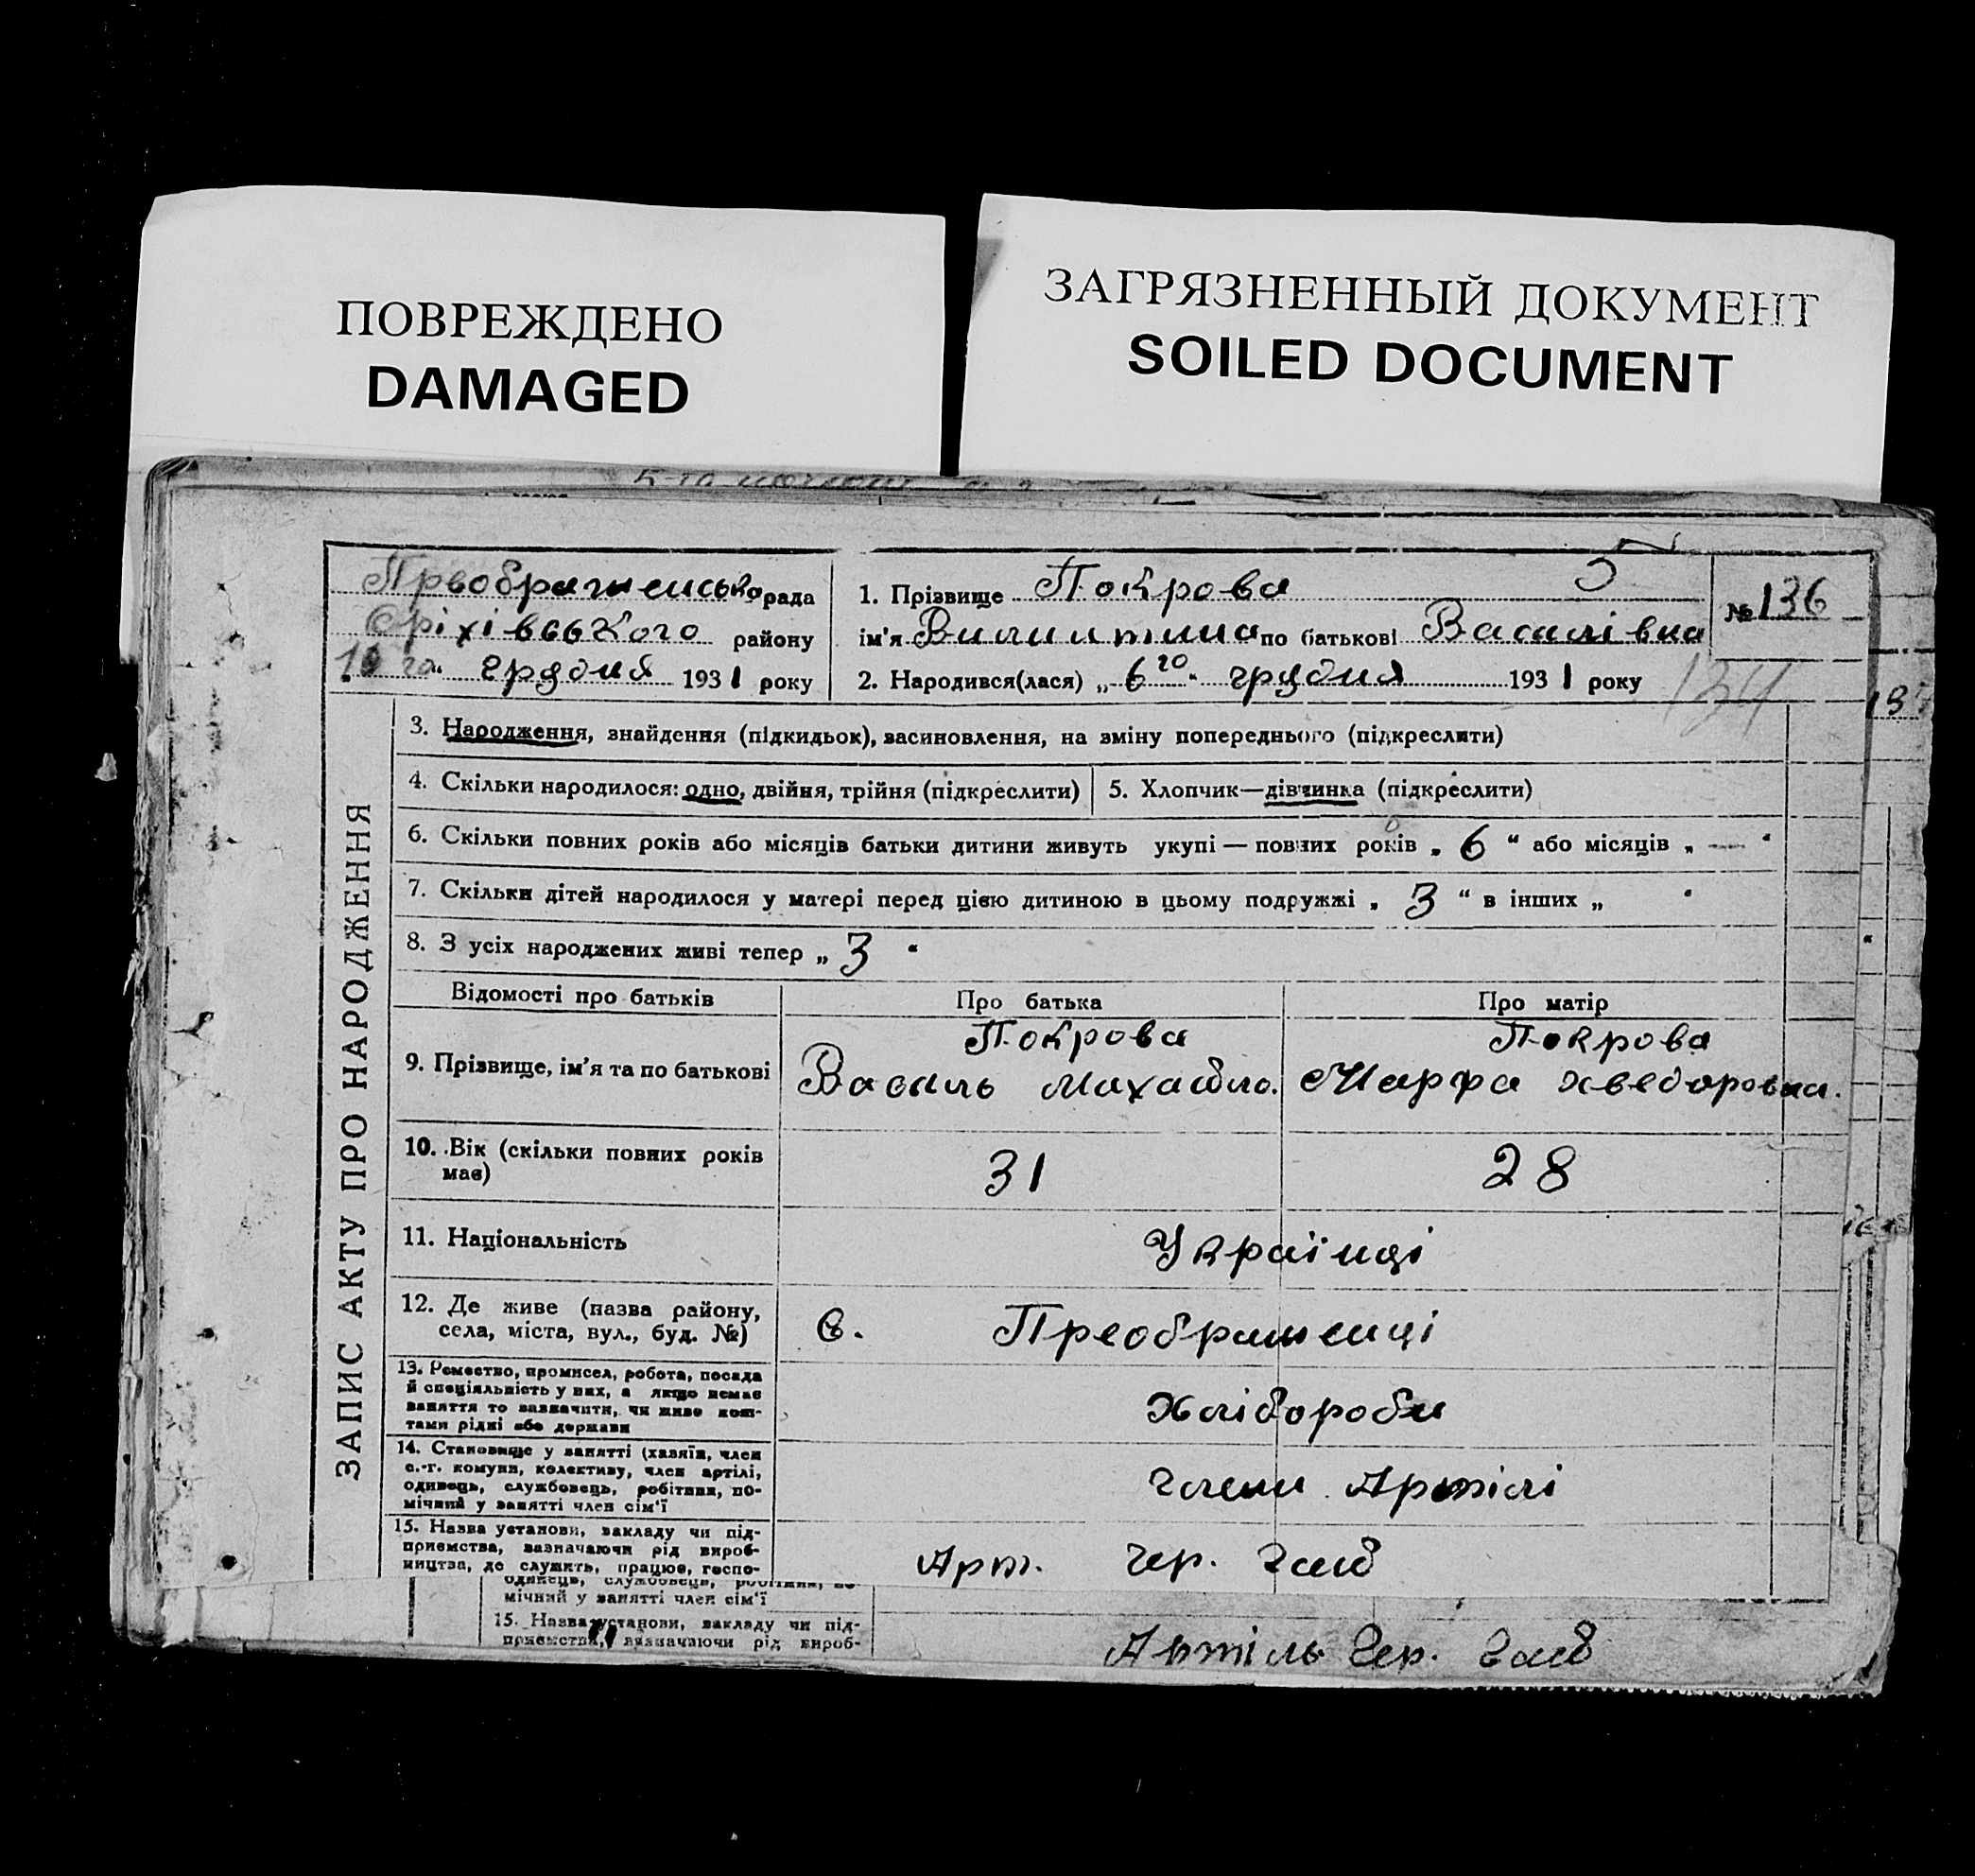 ПОВРЕЖДЕНО
DAMAGED
ЗАГРЯЗНЕННЫЙ ДОКУМЕНТ
SOILED DOCUMENT
Преображенська рада
Оріхівського району
10 го" грудня 1931 року
1. Прізвище Покрова
ім'я по батькові Василівна
2. Народився(лася) „6го" грудня 1931 року
№ 136
134
ЗАПИС АКТУ ПРО НАРОДЖЕННЯ
3. Народження, знайдення (підкидьок), васиновлення, на зміну попереднього (підкреслити)
4. Скільки народилося: одно, двійня, трійня (підкреслити)
5. Хлопчик—дівчинка (підкреслити)
6. Скільки повних років або місяців батьки дитини живуть укупі — повних років „ 6 " або місяців „ — "
7. Скільки дітей народилося у матері перед цією дитиною в цьому подружжі „ 3 " в інших „ "
8. З усіх народжених живі тепер „ 3 "
Відомості про батьків
Про батька
Про матір
9. Прізвище, ім'я та по батькові
Покрова
Василь Михайло.
Покрова
Марфа Хведоровна.
10. Вік (скільки повних років
має)
31
28
11. Національність
Українці
12. Де живе (назва району,
села, міста, вул., буд. №)
с. Преображенці
13. Ремество, промисел, робота, посада
й спеціяльність у них, а якщо немає
заняття то зазначити, чи живе кош-
тами рідні або держави
Хлібороби
14. Становище у занятті (хазяїн, член
с.-г. комуни, колективу, член артілі,
одинець, службовець, робітник, по-
мічний у занятті член сім'ї
Члени Артілі
15. Назва установи, закладу чи під-
приємства, зазначаючи рід вироб-
ництва, де служить, працює, госпо-
Арт. Чер.
одинець, службовець, робітник, по-
мічний у занятті член сім'ї
15. Назва установи, закладу чи під-
приємства, зазначаючи рід вироб-
Артіль Чер.